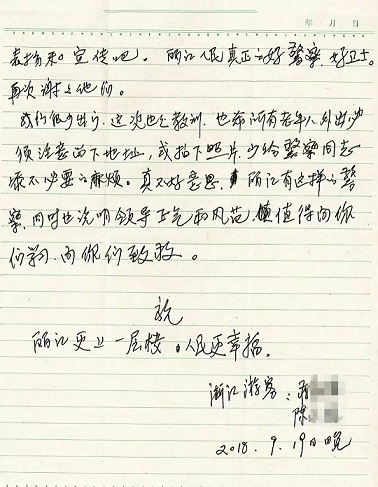 年 月 日
表扬和宣传吧。丽江人民真正的好警察、好卫士。
再次谢谢他们。
我们很少出门,这次也是教训,也希所有老年人外出
须注意记下地址,或拍下照片,少给警察同志
添不必要的麻烦。真不好意思,丽江有这样的警
察,同时也说明领导正气和风范,值得向你
们学习,向你们致敬。
祝
丽江更上一层楼,人民更幸福。
浙江游客:
陈
2018.9.19日晚